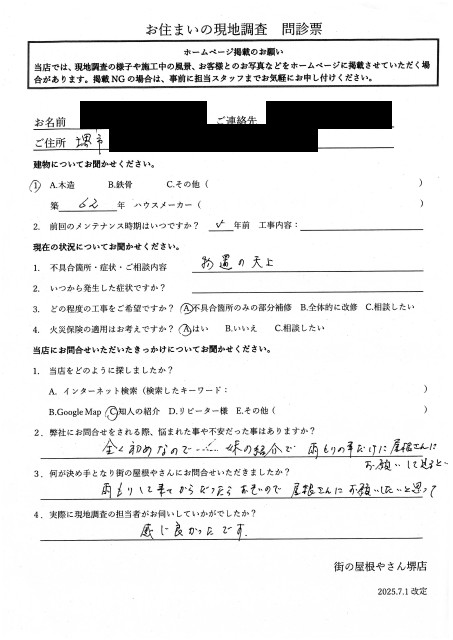 お住まいの現地調査　問診票
ホームページ掲載のお願い
当店では、現地調査の様子や施工中の風景、お客様とのお写真などをホームページに掲載させていただく場
合があります。掲載NGの場合は、事前に担当スタッフまでお気軽にお申し付けください。
お名前　ご連絡先
ご住所　堺市
建物についてお聞かせください。
1　A.木造　B.鉄骨　C.その他（　）
築　62　年　ハウスメーカー（　）
2.　前回のメンテナンス時期はいつですか？　年前　工事内容：
現在の状況についてお聞かせください。
1.　不具合箇所・症状・ご相談内容　物置の天上
2.　いつから発生した症状ですか？
3.　どの程度の工事をご希望ですか？　A.不具合箇所のみの部分補修　B.全体的に改修　C.相談したい
4.　火災保険の適用はお考えですか？　A.はい　B.いいえ　C.相談したい
当店にお問合せいただいたきっかけについてお聞かせください。
1.　当店をどのように探しましたか？
A.　インターネット検索（検索したキーワード：　）
B.Google Map　C.知人の紹介　D.リピーター様　E.その他（　）
2．弊社にお問合せをされる際、悩まれた事や不安だった事はありますか？
全く初めなので……妹の紹介で　雨もりの事だけに屋根さんに
お願いして見ると
3．何が決め手となり街の屋根やさんにお問合せいただきましたか？
雨もりして来てからだったら　屋根さんに　お願いしたいと思って
4．実際に現地調査の担当者がお伺いしていかがでしたか？
感じ良かったです.
街の屋根やさん堺店
2025.7.1 改定